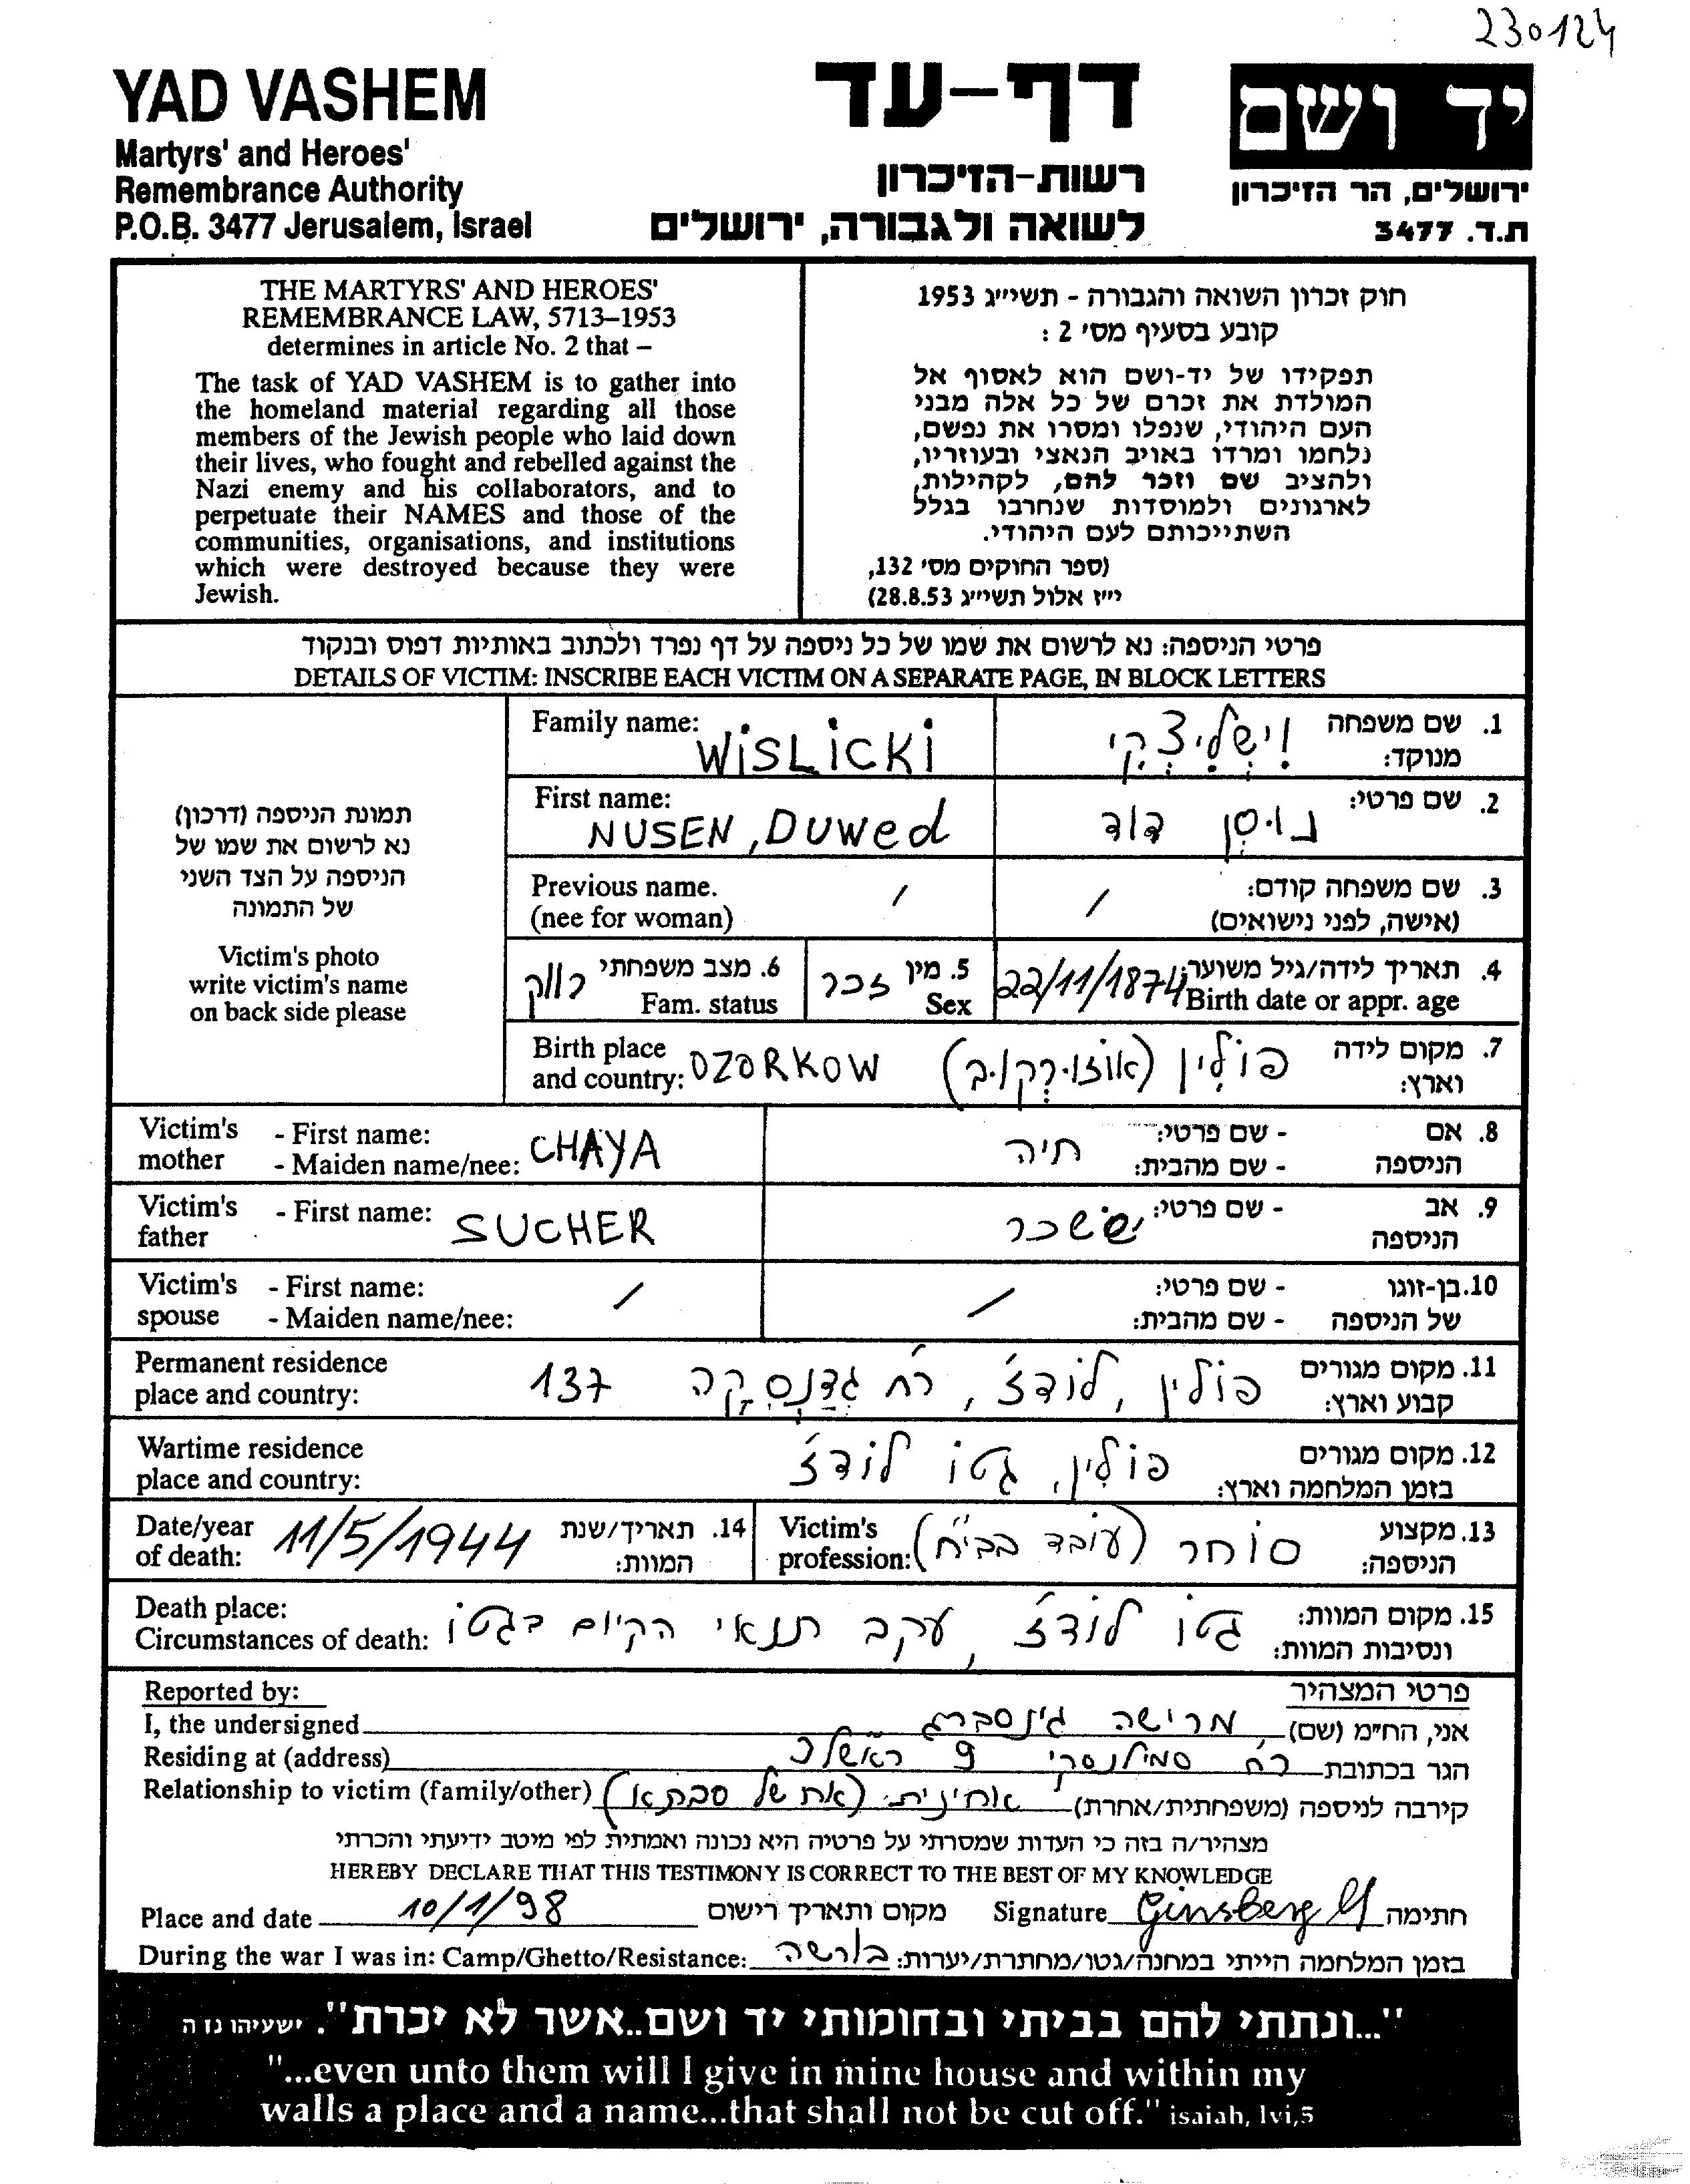 230124
YAD VASHEM
Martyrs' and Heroes'
Remembrance Authority
P.O.B. 3477 Jerusalem, Israel
דף-עד
רשות-הזיכרון
לשואה ולגבורה, ירושלים
יד ושם
ירושלים, הר הזיכרון
ת.ד. 3477
THE MARTYRS' AND HEROES'
REMEMBRANCE LAW, 5713–1953
determines in article No. 2 that –
The task of YAD VASHEM is to gather into
the homeland material regarding all those
members of the Jewish people who laid down
their lives, who fought and rebelled against the
Nazi enemy and his collaborators, and to
perpetuate their NAMES and those of the
communities, organisations, and institutions
which were destroyed because they were
Jewish.
חוק זכרון השואה והגבורה - תשי"ג 1953
קובע בסעיף מס' 2 :
תפקידו של יד-ושם הוא לאסוף אל
המולדת את זכרם של כל אלה מבני
העם היהודי, שנפלו ומסרו את נפשם,
נלחמו ומרדו באויב הנאצי ובעוזריו,
ולהציב שם וזכר להם, לקהילות,
לארגונים ולמוסדות שנחרבו בגלל
השתייכותם לעם היהודי.
(ספר החוקים מס' 132,
י"ז אלול תשי"ג 28.8.53)
פרטי הניספה: נא לרשום את שמו של כל ניספה על דף נפרד ולכתוב באותיות דפוס ובנקוד
DETAILS OF VICTIM: INSCRIBE EACH VICTIM ON A SEPARATE PAGE, IN BLOCK LETTERS
תמונת הניספה (דרכון)
נא לרשום את שמו של
הניספה על הצד השני
של התמונה
Victim's photo
write victim's name
on back side please
Family name: WiSLiCKi וִישְׁלִיצְקִי 1. שם משפחה מנוקד:
First name: NUSEN, DUWed נוסן דוד 2. שם פרטי:
Previous name. (nee for woman) / / 3. שם משפחה קודם: (אישה, לפני נישואים)
רווק 6. מצב משפחתי Fam. status זכר 5. מין Sex 22/11/1874 4. תאריך לידה/גיל משוער: Birth date or appr. age
Birth place and country: OZORKOW פולין (אוזורקוב) 7. מקום לידה וארץ:
Victim's mother - First name: - Maiden name/nee: CHAYA חיה - שם פרטי: - שם מהבית: 8. אם הניספה
Victim's father - First name: SUCHER יששכר - שם פרטי: 9. אב הניספה
Victim's spouse - First name: - Maiden name/nee: / / - שם פרטי: - שם מהבית: 10. בן-זוגו של הניספה
Permanent residence place and country: פולין, לודז', רח' גדנסקה 137 11. מקום מגורים קבוע וארץ:
Wartime residence place and country: פולין, גטו לודז' 12. מקום מגורים בזמן המלחמה וארץ:
Date/year of death: 11/5/1944 14. תאריך/שנת המוות: Victim's profession: סוחר (עובד בבי"ח) 13. מקצוע הניספה:
Death place: Circumstances of death: גטו לודז', עקב תנאי הקיום בגטו 15. מקום המוות: ונסיבות המוות:
Reported by: פרטי המצהיר
I, the undersigned מרישה גינסברג אני, הח"מ (שם)
Residing at (address) רח' סמילנסקי 9 ראשל"צ הגר בכתובת
Relationship to victim (family/other) אחיינית (אח של סבתא) קירבה לניספה (משפחתית/אחרת)
מצהיר/ה בזה כי העדות שמסרתי על פרטיה היא נכונה ואמתית לפי מיטב ידיעתי והכרתי
HEREBY DECLARE THAT THIS TESTIMONY IS CORRECT TO THE BEST OF MY KNOWLEDGE
Place and date 10/1/98 מקום ותאריך רישום Signature Ginsberg M חתימה
During the war I was in: Camp/Ghetto/Resistance: בורשה בזמן המלחמה הייתי במחנה/גטו/מחתרת/יערות:
"...ונתתי להם בביתי ובחומותי יד ושם..אשר לא יכרת". ישעיהו נז ה
"...even unto them will I give in mine house and within my
walls a place and a name...that shall not be cut off." isaiah, lvi,5